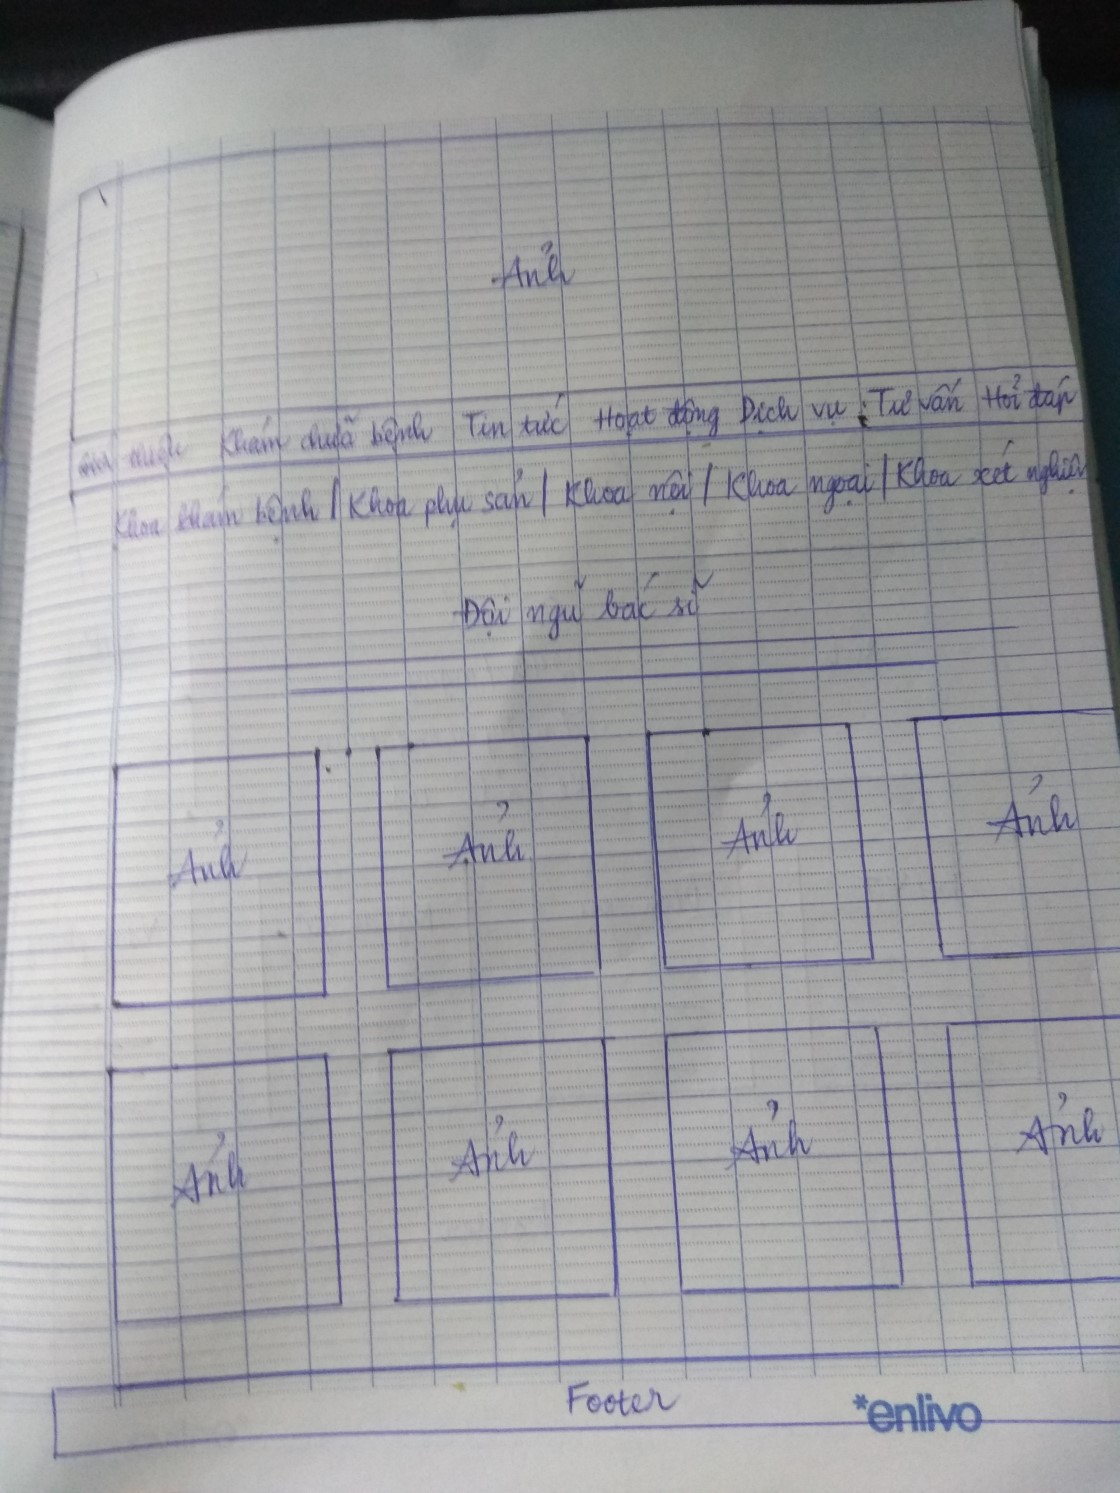 Ảnh
Giới thiệu Khám chữa bệnh Tin tức Hoạt động Dịch vụ Tư vấn Hỏi đáp
Khoa khám bệnh / Khoa phụ sản / Khoa nội / Khoa ngoại / Khoa xét nghiệm
Đội ngũ bác sĩ
Ảnh Ảnh Ảnh Ảnh
Ảnh Ảnh Ảnh Ảnh
Footer
*enlivo